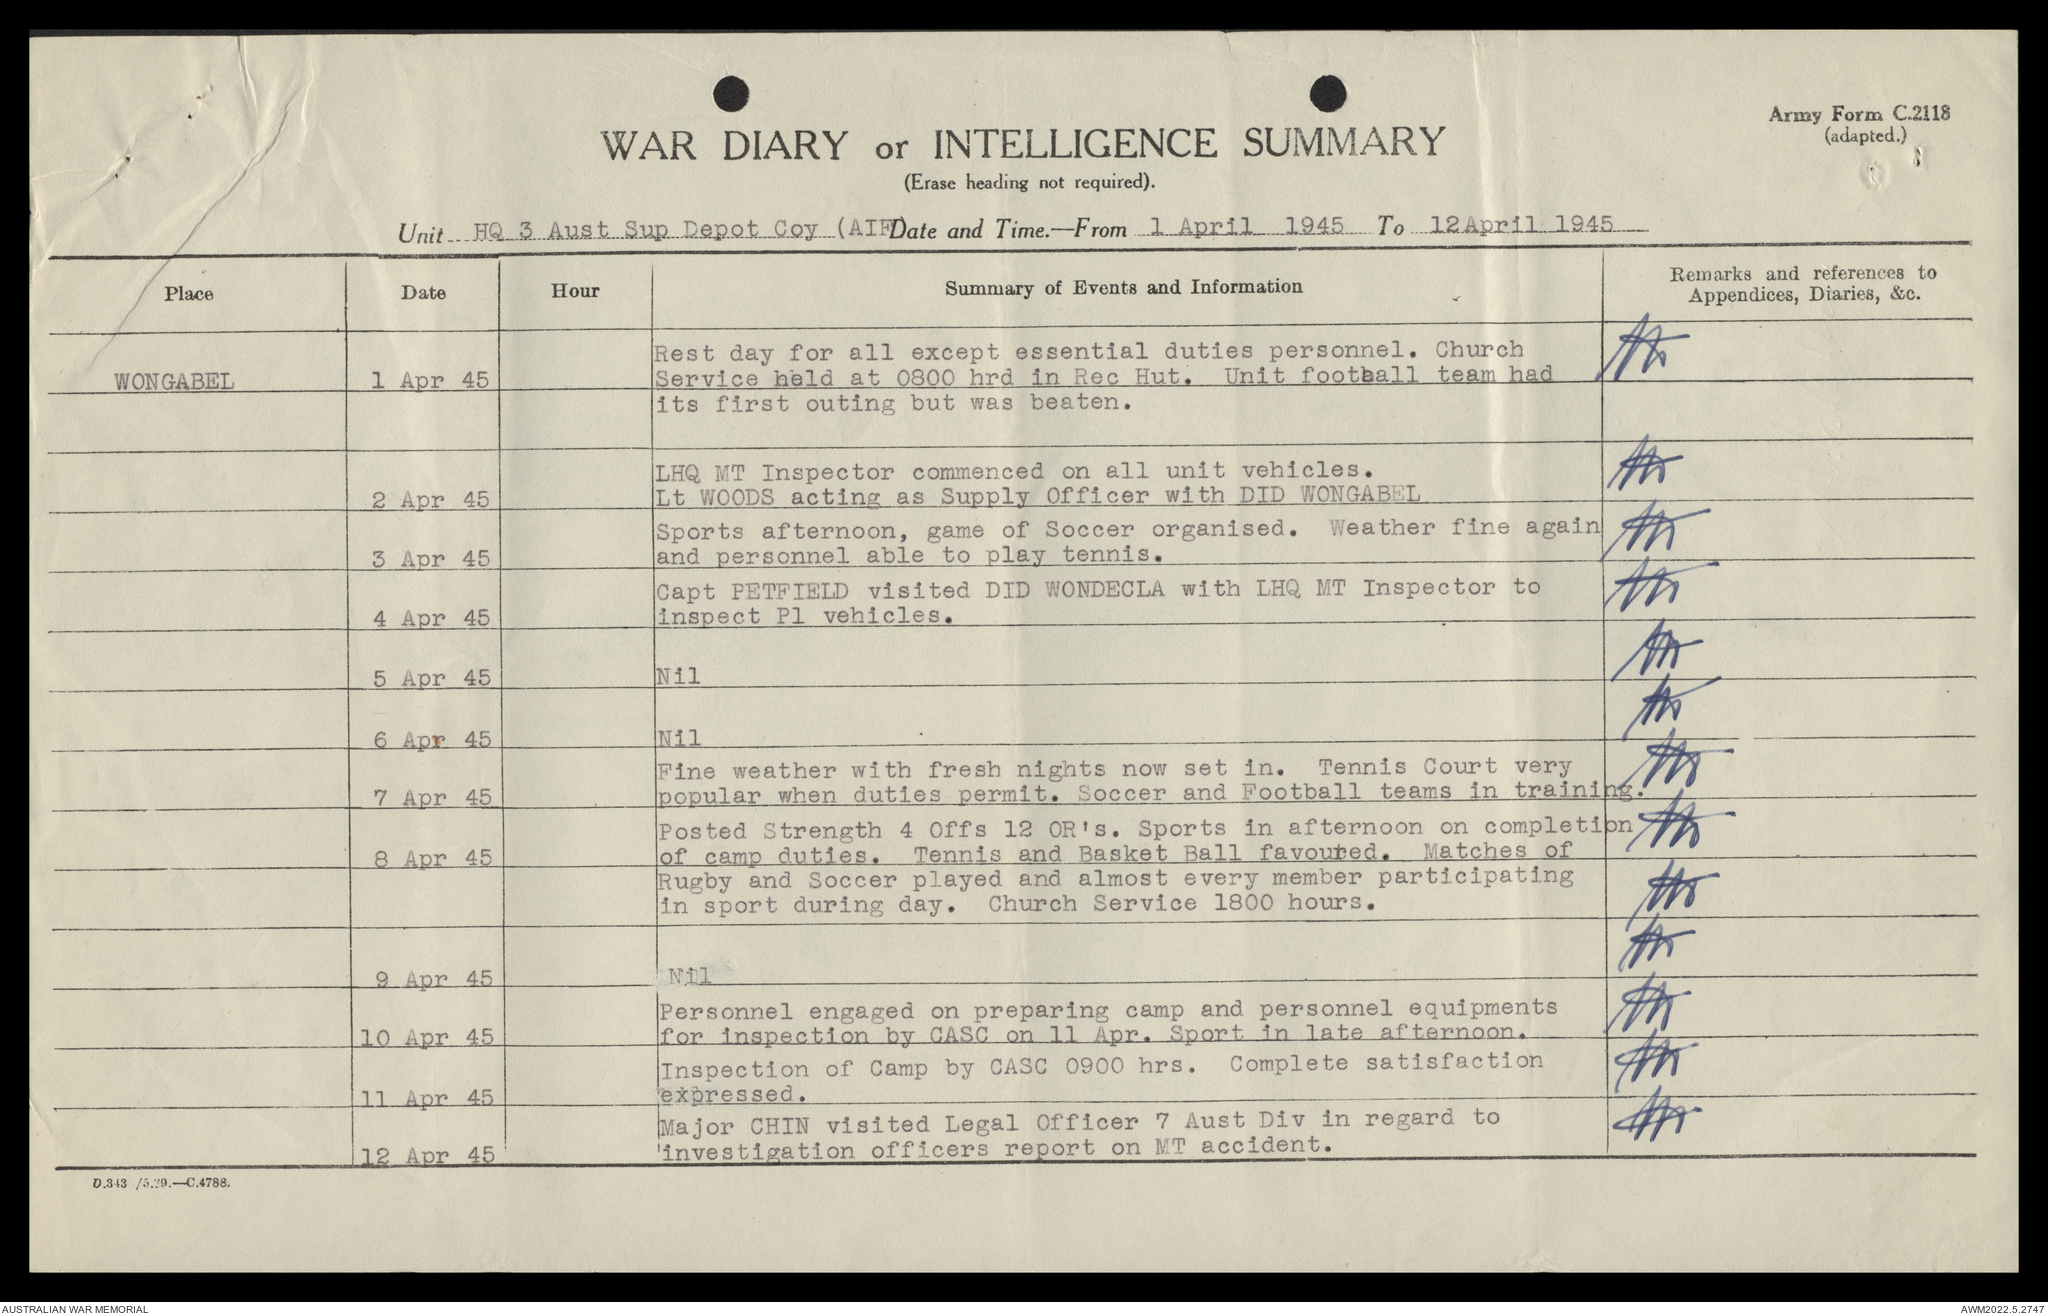 Army Form C.2118
(adapted.)
WAR DIARY or INTELLIGENCE SUMMARY
(Erase heading not required).
Unit HQ 3 Aust Sup Depot Coy (AIF) Date and Time.—From 1 April 1945 To 12 April 1945
Place Date Hour Summary of Events and Information Remarks and references to
Appendices, Diaries, &c.
Rest day for all except essential duties personnel. Church
WONGABEL 1 Apr 45 Service held at 0800 hrd in Rec Hut. Unit football team had
its first outing but was beaten.
LHQ MT Inspector commenced on all unit vehicles.
2 Apr 45 Lt WOODS acting as Supply Officer with DID WONGABEL
Sports afternoon, game of Soccer organised. Weather fine again
3 Apr 45 and personnel able to play tennis.
Capt PETFIELD visited DID WONDECLA with LHQ MT Inspector to
4 Apr 45 inspect Pl vehicles.
5 Apr 45 Nil
6 Apr 45 Nil
Fine weather with fresh nights now set in. Tennis Court very
7 Apr 45 popular when duties permit. Soccer and Football teams in training.
Posted Strength 4 Offs 12 OR's. Sports in afternoon on completion
8 Apr 45 of camp duties. Tennis and Basket Ball favoured. Matches of
Rugby and Soccer played and almost every member participating
in sport during day. Church Service 1800 hours.
9 Apr 45 Nil
Personnel engaged on preparing camp and personnel equipments
10 Apr 45 for inspection by CASC on 11 Apr. Sport in late afternoon.
Inspection of Camp by CASC 0900 hrs. Complete satisfaction
11 Apr 45 expressed.
Major CHIN visited Legal Officer 7 Aust Div in regard to
12 Apr 45 investigation officers report on MT accident.
D.343 /5.29.—C.4788.
AUSTRALIAN WAR MEMORIAL AWM2022.5.2747